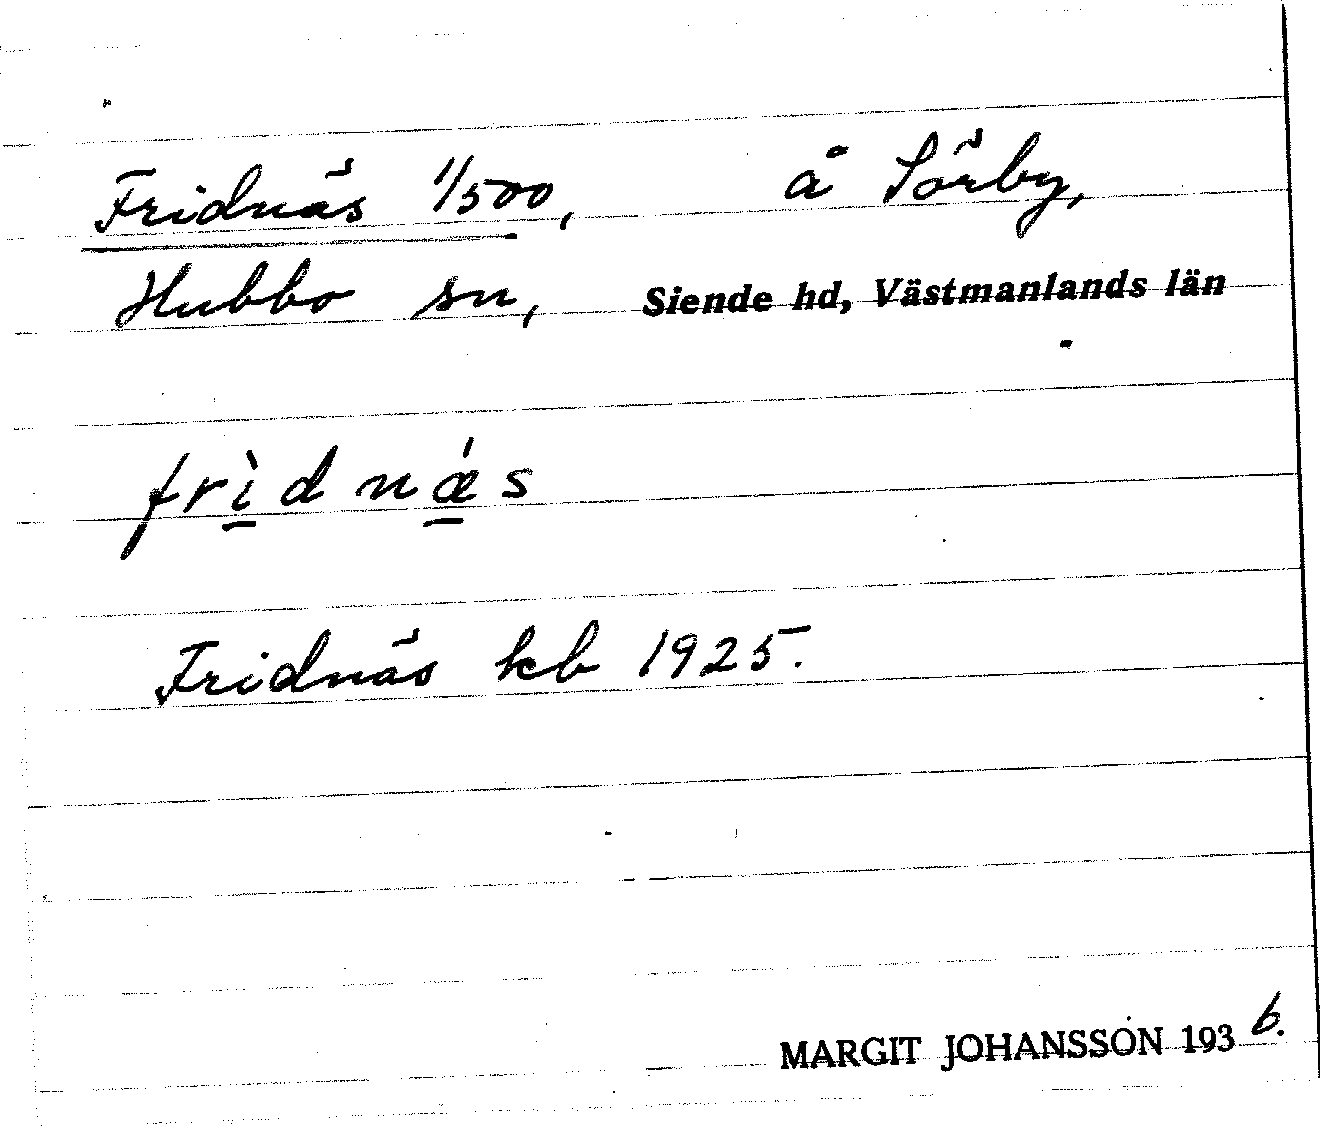 Fridnäs 1/500, å Sörby,
Hubbo sn, Siende hd, Västmanlands län
frìdnǽs
Fridnäs kb 1925.
MARGIT JOHANSSON 1936.